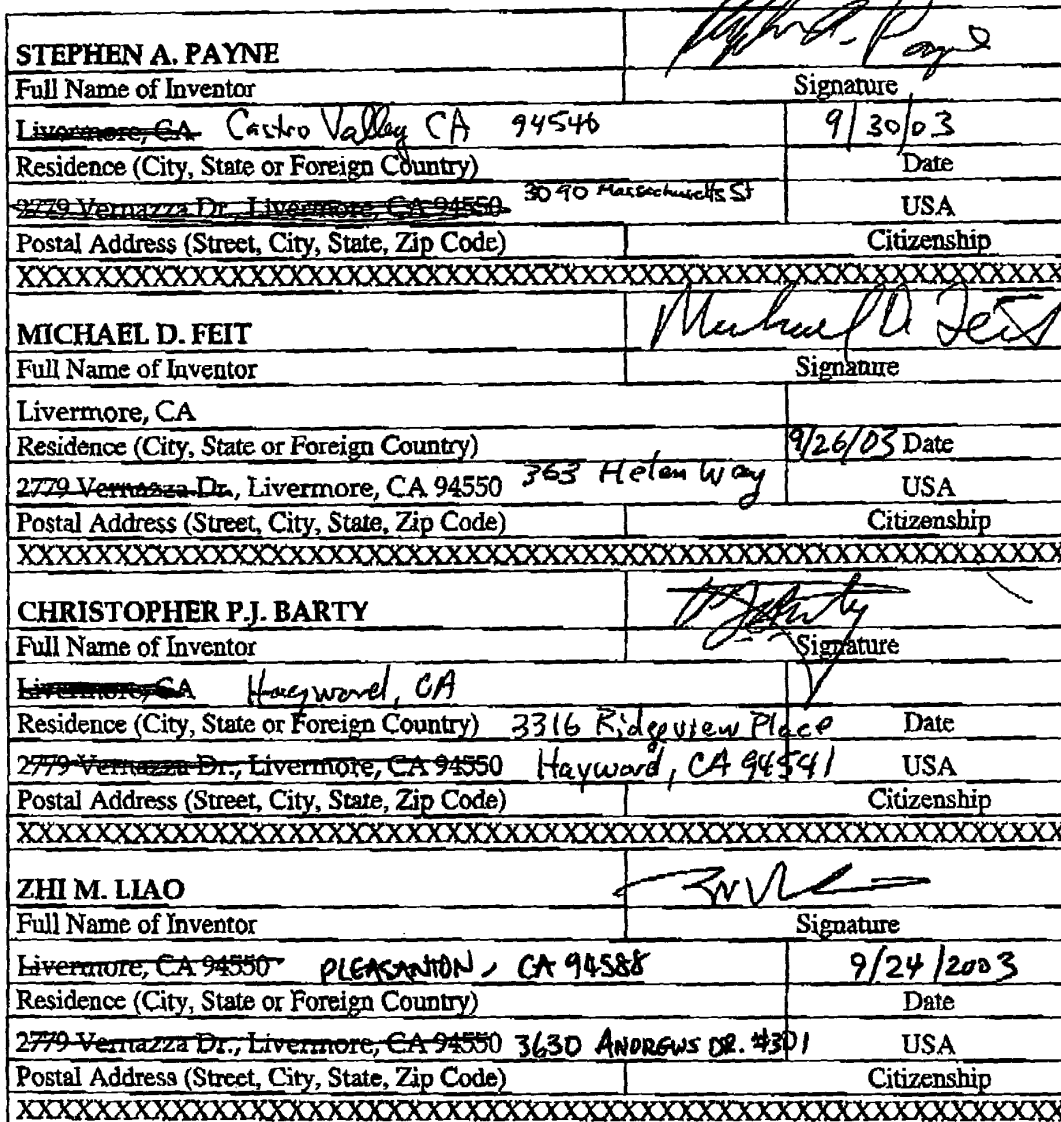 STEPHEN A. PAYNE
Full Name of Inventor Signature
Livermore, CA Castro Valley CA 94546 9/30/03
Residence (City, State or Foreign Country) Date
2779 Vernazza Dr., Livermore, CA 94550 3090 Massachusetts St USA
Postal Address (Street, City, State, Zip Code) Citizenship
XXXXXXXXXXXXXXXXXXXXXXXXXXXXXXXXXXXXXXXXXXXXXXXXXXXXXXXX
MICHAEL D. FEIT Michael D. Feit
Full Name of Inventor Signature
Livermore, CA
Residence (City, State or Foreign Country) 9/26/03 Date
2779 Vernazza Dr., Livermore, CA 94550 363 Helen Way USA
Postal Address (Street, City, State, Zip Code) Citizenship
XXXXXXXXXXXXXXXXXXXXXXXXXXXXXXXXXXXXXXXXXXXXXXXXXXXXXXXX
CHRISTOPHER P.J. BARTY
Full Name of Inventor Signature
Livermore, CA Hayward, CA
Residence (City, State or Foreign Country) 3316 Ridgeview Place Date
2779 Vernazza Dr., Livermore, CA 94550 Hayward, CA 94541 USA
Postal Address (Street, City, State, Zip Code) Citizenship
XXXXXXXXXXXXXXXXXXXXXXXXXXXXXXXXXXXXXXXXXXXXXXXXXXXXXXXX
ZHI M. LIAO
Full Name of Inventor Signature
Livermore, CA 94550 PLEASANTON, CA 94588 9/24/2003
Residence (City, State or Foreign Country) Date
2779 Vernazza Dr., Livermore, CA 94550 3630 ANDREWS DR. #301 USA
Postal Address (Street, City, State, Zip Code) Citizenship
XXXXXXXXXXXXXXXXXXXXXXXXXXXXXXXXXXXXXXXXXXXXXXXXXXXXXXXX